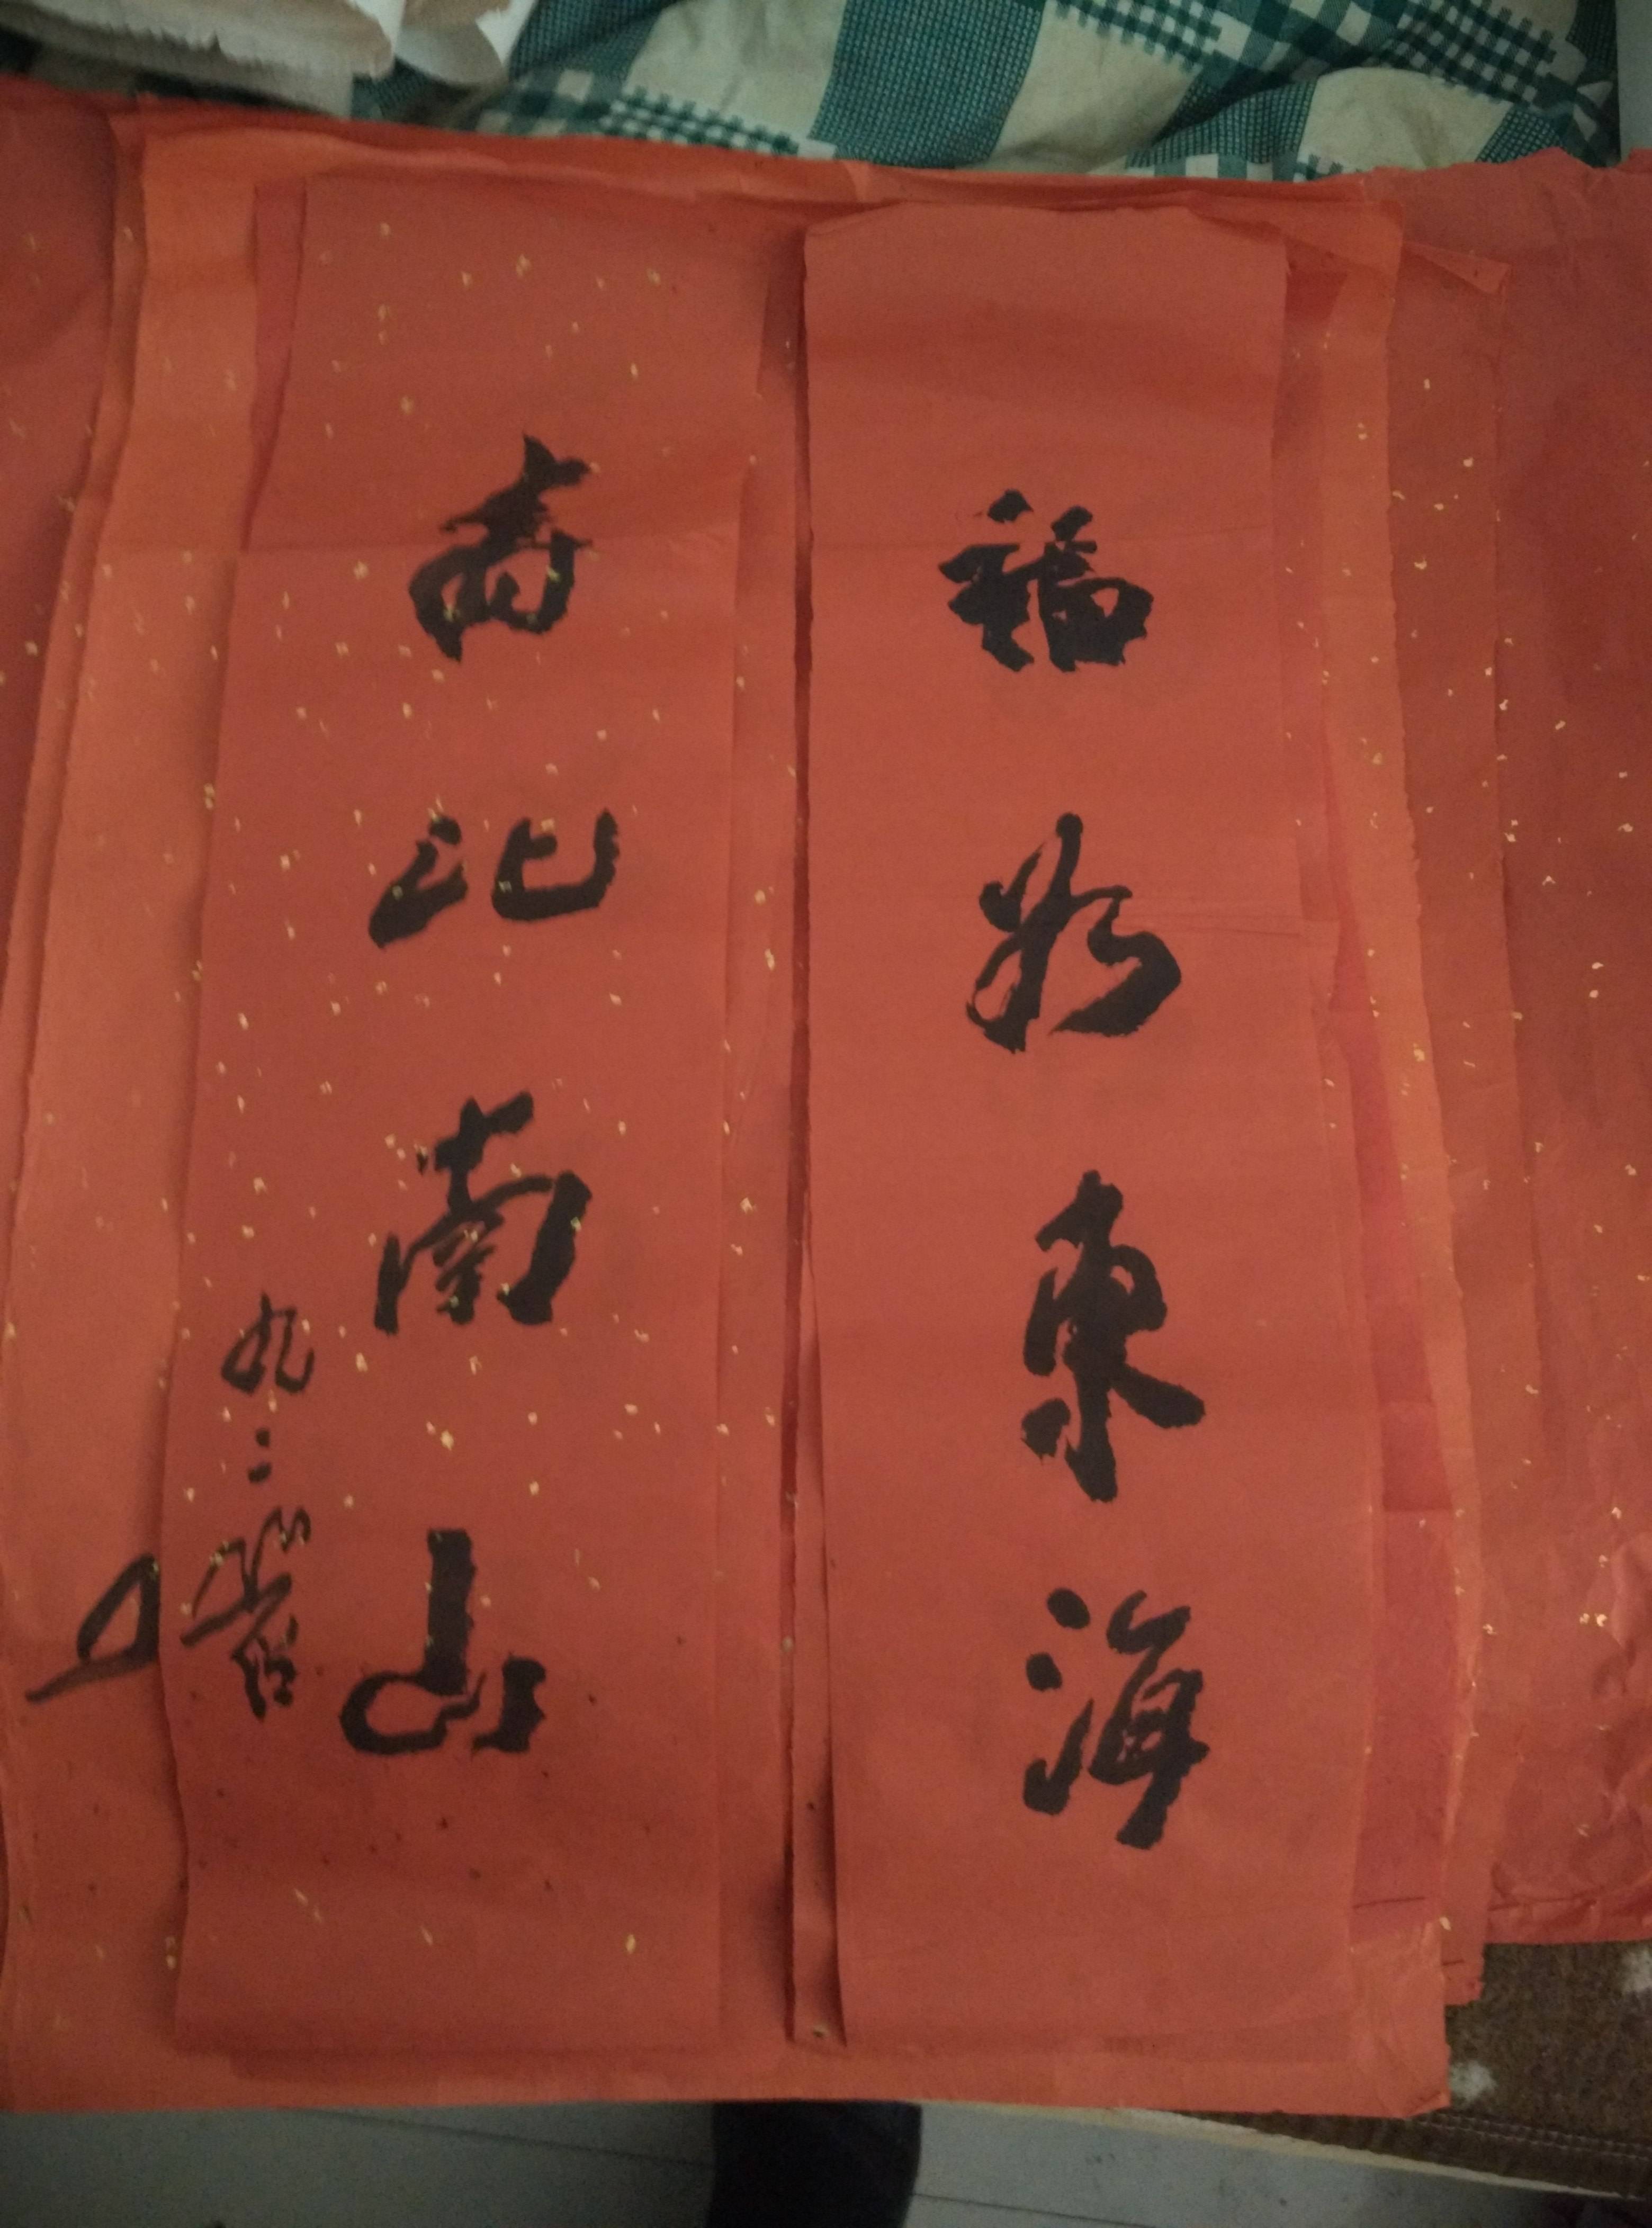 福如东海
寿比南山
九二